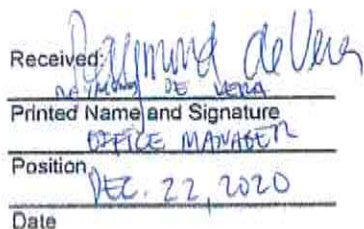 Received: Raymund de Vera
RAYMUND DE VERA
Printed Name and Signature
OFFICE MANAGER
Position
DEC. 22, 2020
Date